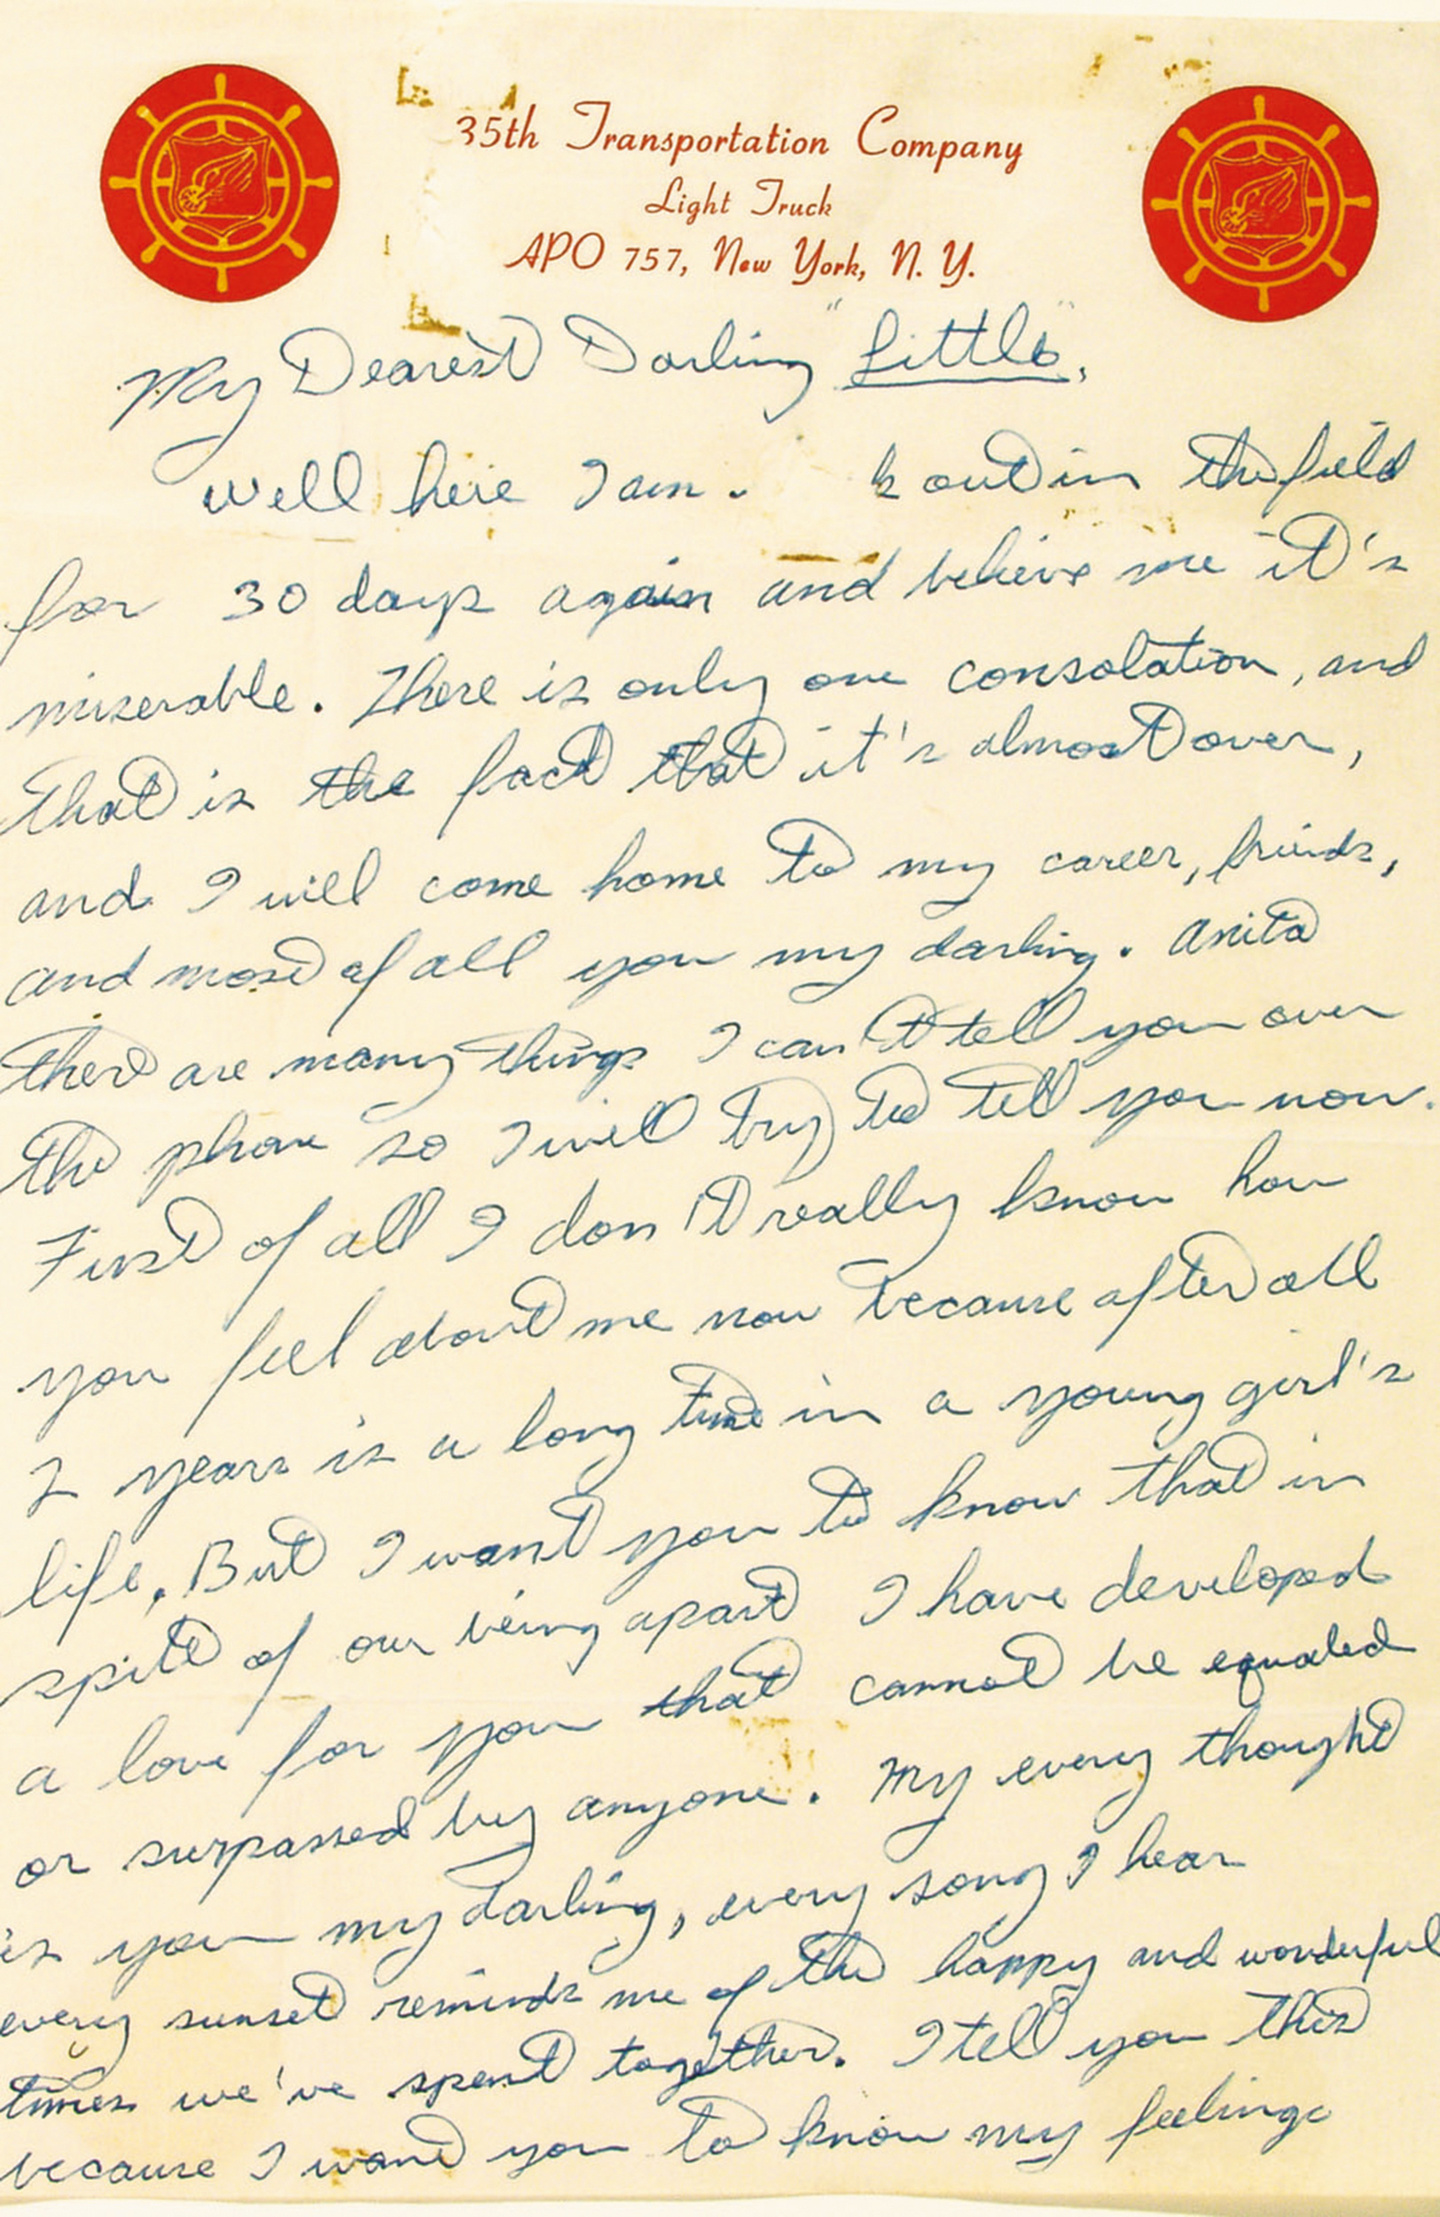 35th Transportation Company
Light Truck
APO 757, New York, N. Y.
My Dearest Darling "Little",
Well here I am. k out in the field
for 30 days again and believe me it's
miserable. There is only one consolation, and
that is the fact that it's almost over,
and I will come home to my career, friends,
and most of all you my darling. Anita
there are many things I can't tell you over
the phone so I will try to tell you now.
First of all I don't really know how
you feel about me now because after all
2 years is a long time in a young girl's
life. But I want you to know that in
spite of our being apart I have developed
a love for you that cannot be equaled
or surpassed by anyone. My every thought
is you my darling, every song I hear
every sunset reminds me of the happy and wonderful
times we've spent together. I tell you this
because I want you to know my feelings